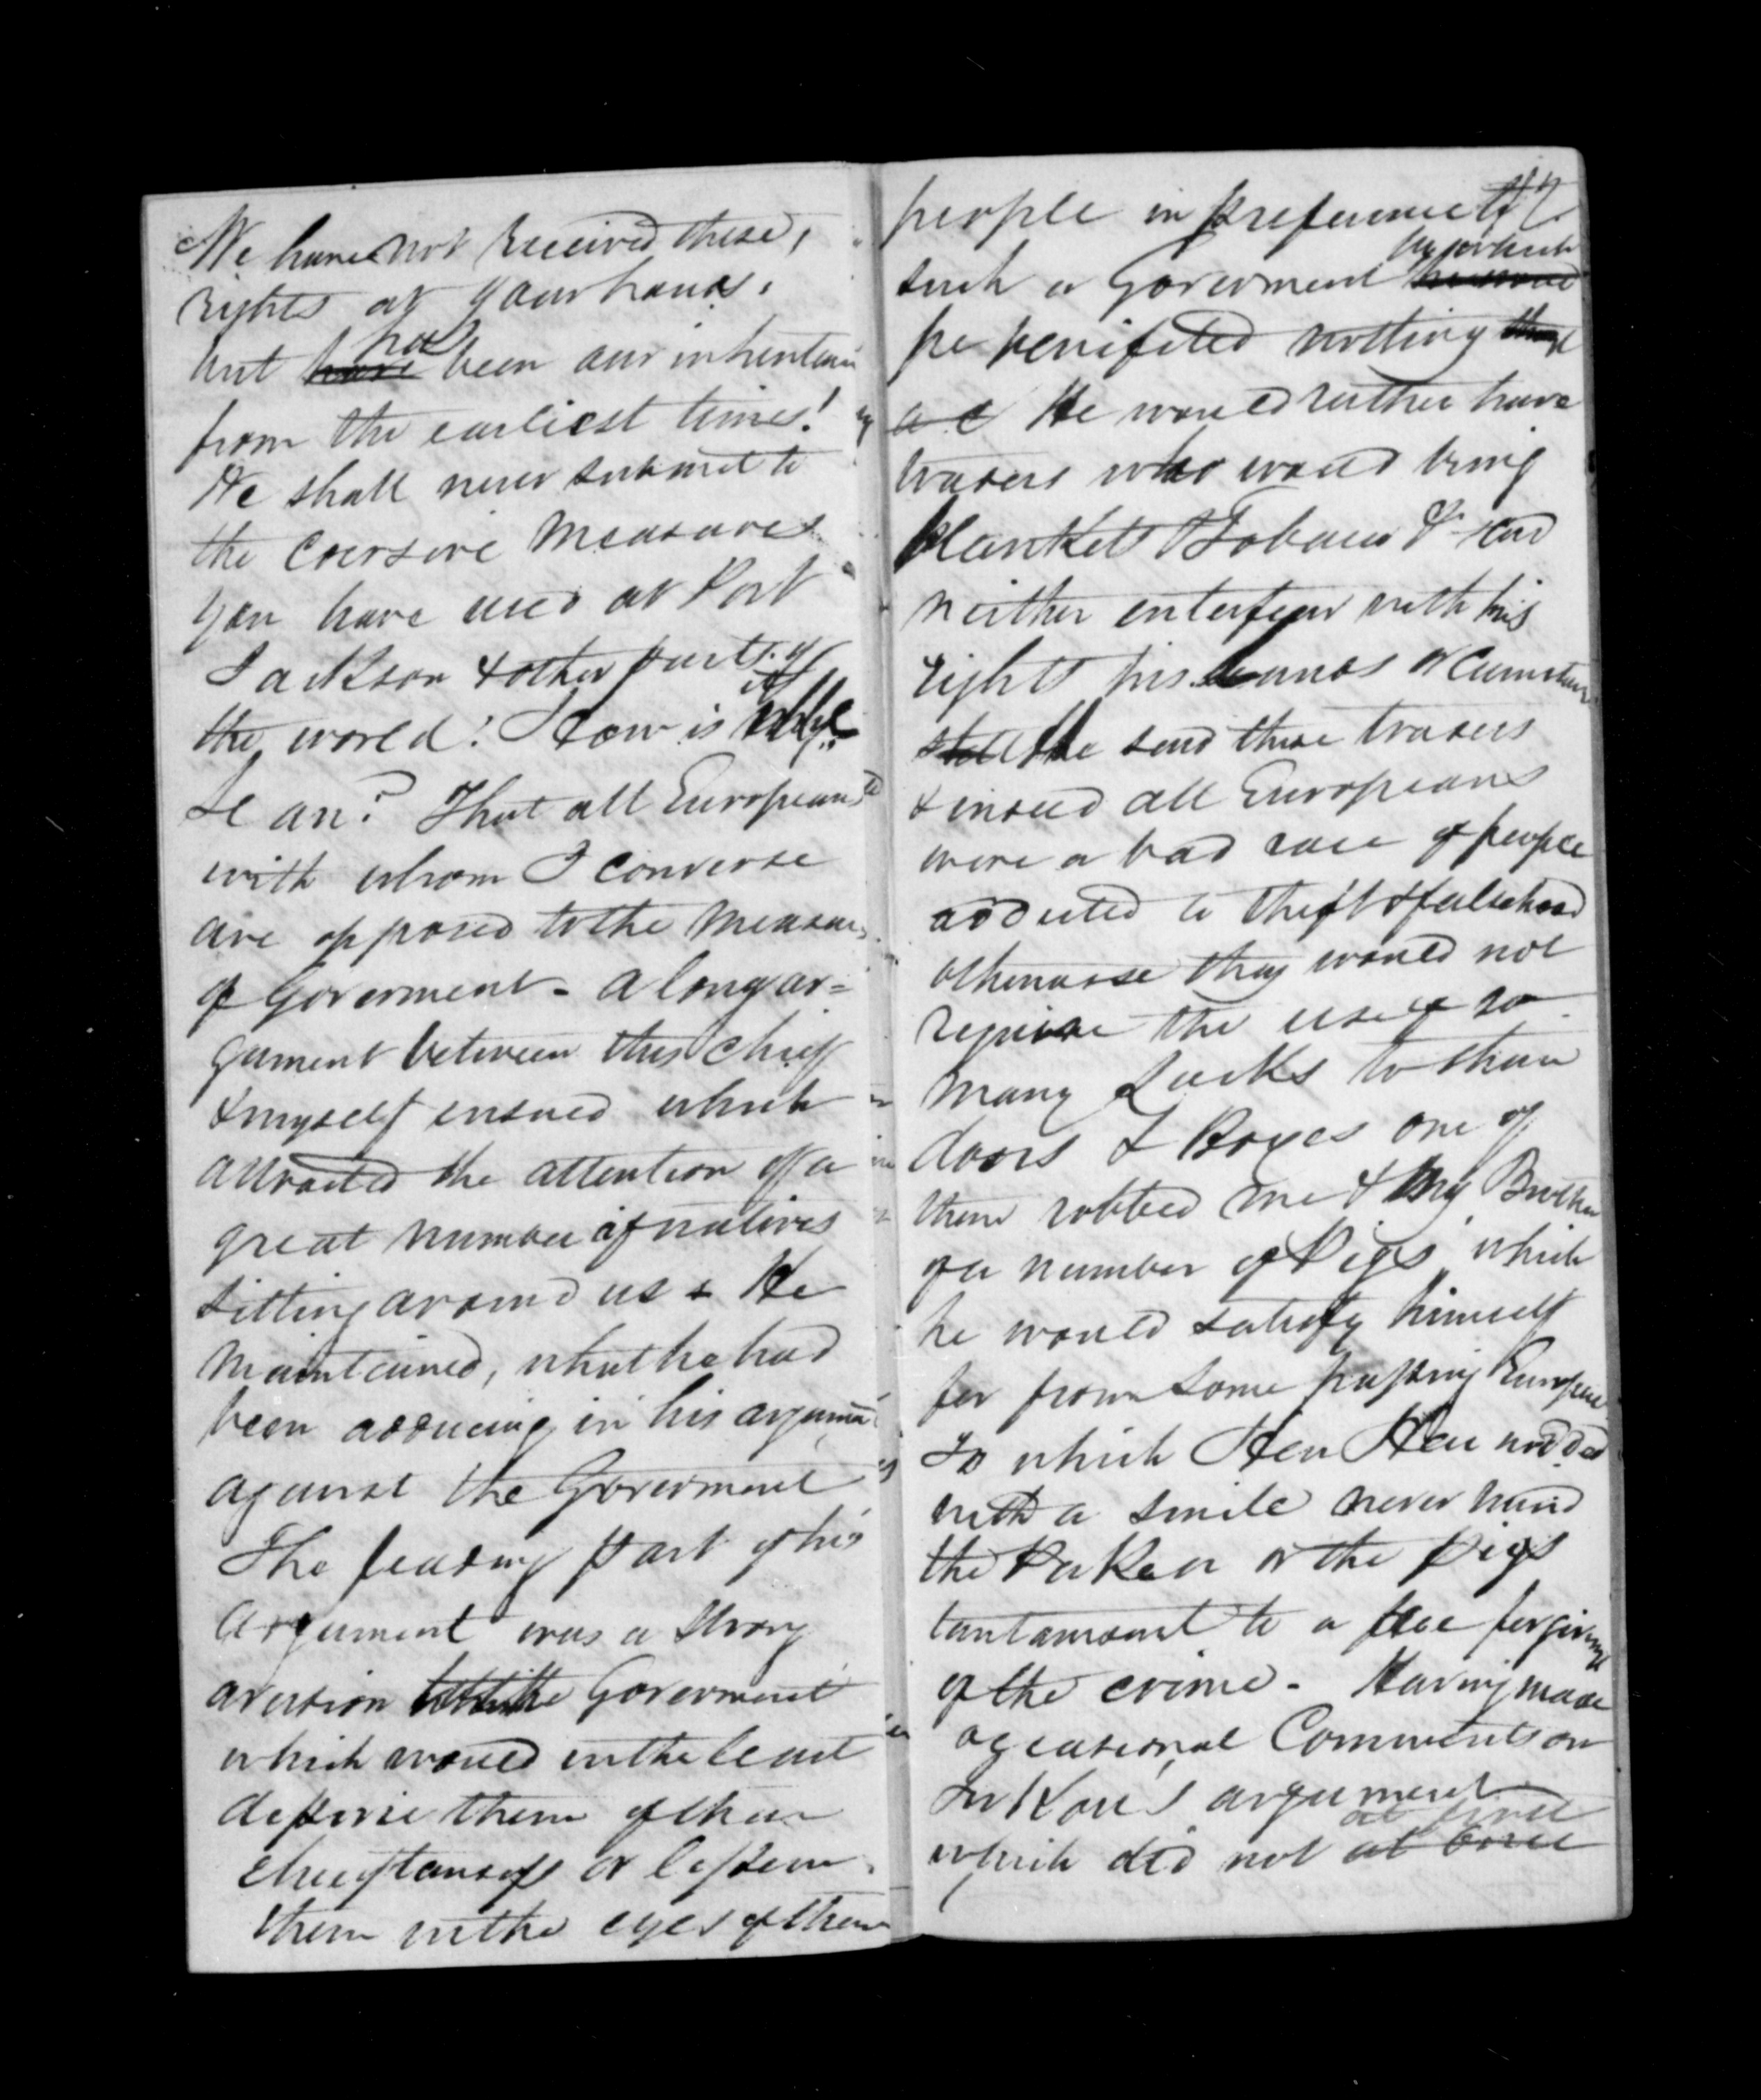 We have not received these,
rights at your hands.
but has been our inheritance
from the earliest times!
We shall never submit to
the coersive measures
you have used at Port
Jackson & other parts of
the world! How is it
Se an? That all Europeans
with whom I converse
are opposed to the measures
of Goverment - a long ar=
gument between this chief
& myself ensued which
attracted the attention of a
great number of natives
sitting around us & He
maintained, what he had
been adducing in his argument
against the Goverment
The leading part of his
argument was a strong
avertion to the Goverment
which would in the least
deprive them of their
chieftanship or lessen
them in the eyes of their
people in preference to
such a Goverment by which
he benifited nothing
a c He would rather have
traders who would bring
Blankets Tobacco &c and
neither enterfear with his
rights his Lands or Cumstums
he said these traders
& indeed all Europeans
were a bad race of people
addicted to theft & falsehood
otherwise they would not
require the use of so
many Locks to their
doors & Boxes one of
them robbed me & my Brother
of a number of Pigs which
he would satisfy himself
for from some passing European
To which Heu Heu nodded
with a smile never mind
the Pakea or the pigs
tantamount to a free forgiveness
of the crime. - Having made
occasional Comments on
argument
which did not at once at once